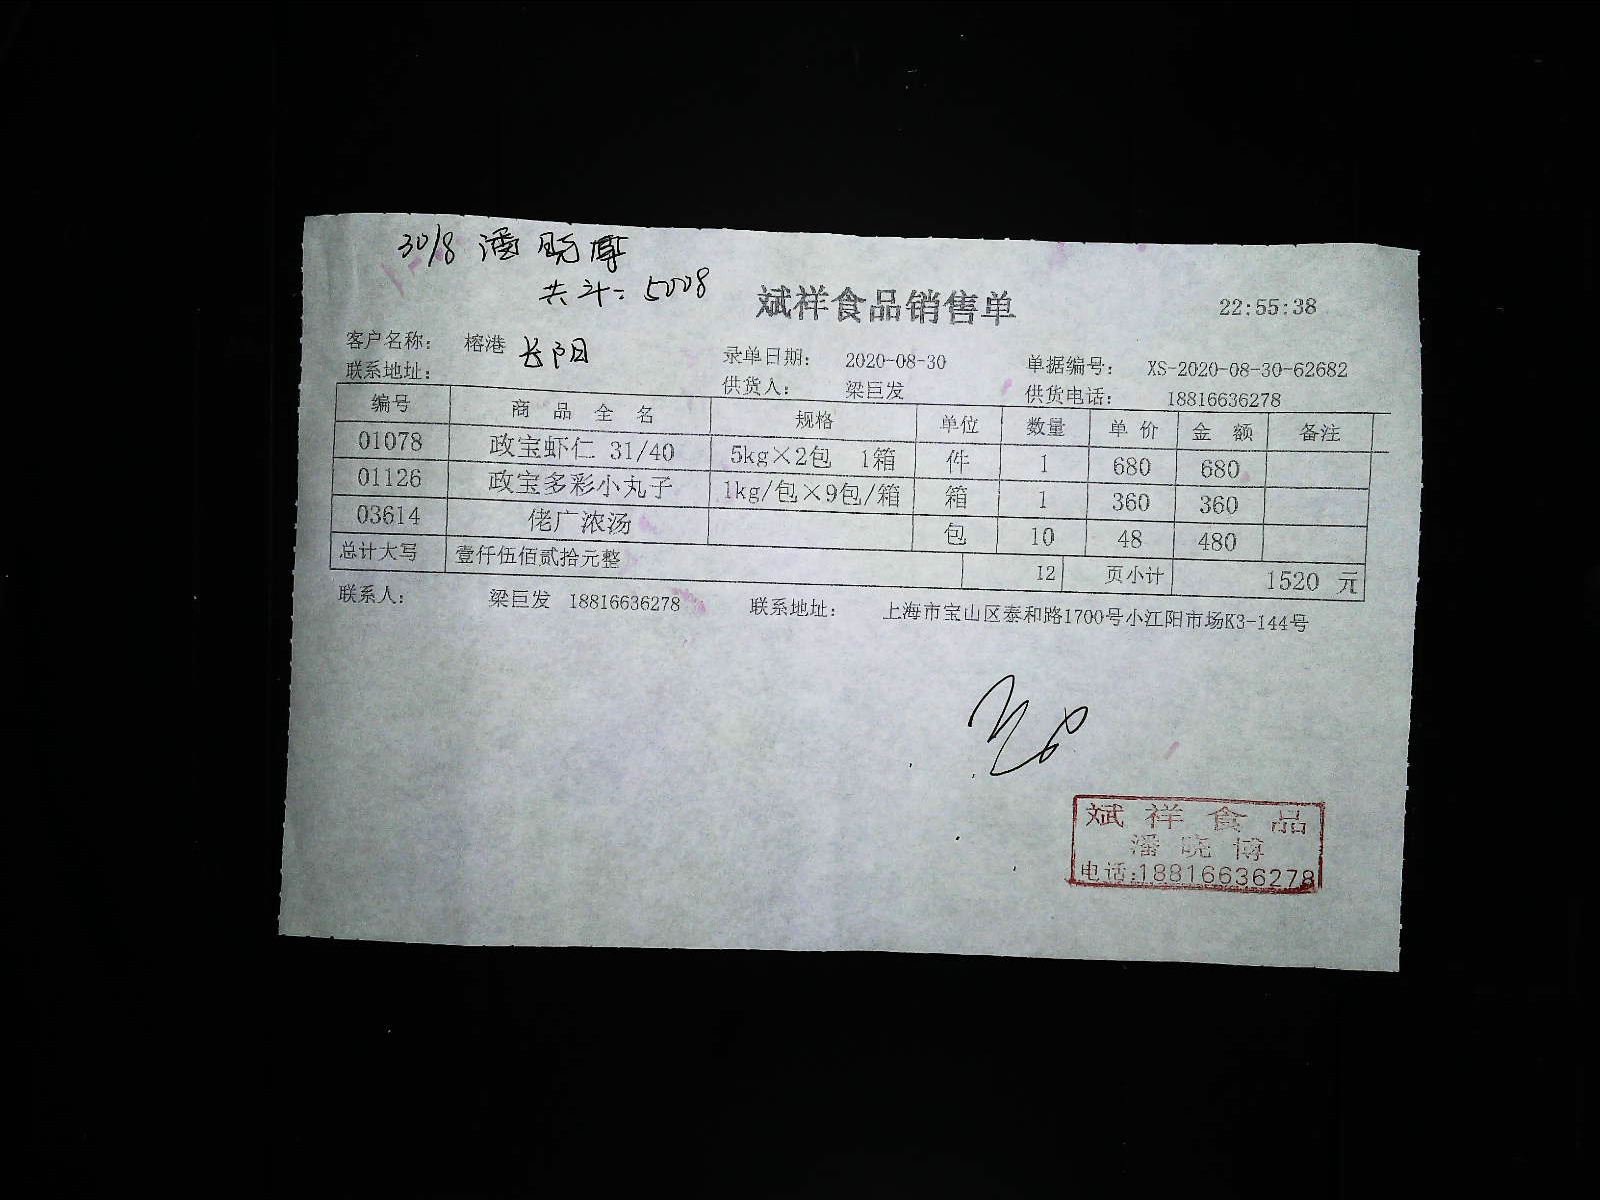 30/8 潘晓博
共计: 5008
斌祥食品销售单 22:55:38
客户名称: 榕港 长阳 录单日期: 2020-08-30 单据编号: XS-2020-08-30-62682
联系地址: 供货人: 梁巨发 供货电话: 18816636278
编号 商品全名 规格 单位 数量 单价 金额 备注
01078 政宝虾仁 31/40 5kg×2包 1箱 件 1 680 680
01126 政宝多彩小丸子 1kg/包×9包/箱 箱 1 360 360
03614 佬广浓汤 包 10 48 480
总计大写 壹仟伍佰贰拾元整 12 页小计 1520 元
联系人: 梁巨发 18816636278 联系地址: 上海市宝山区泰和路1700号小江阳市场K3-144号
斌祥食品
潘晓博
电话:18816636278